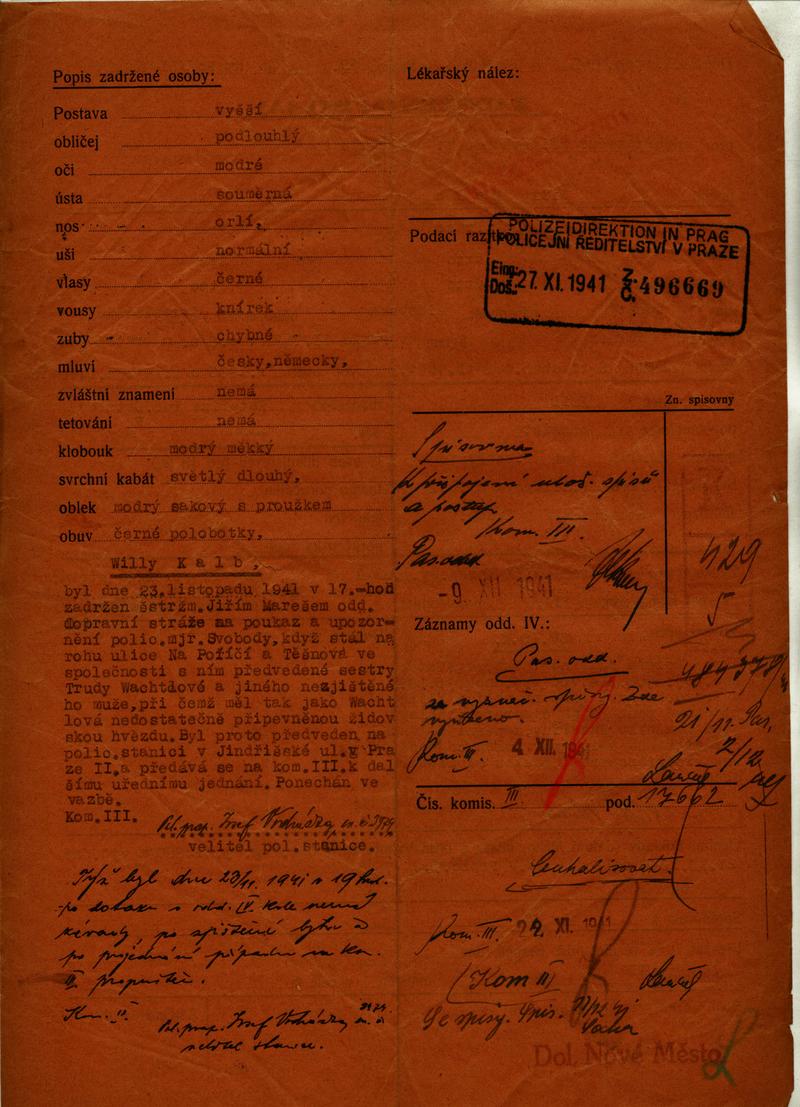 Popis zadržené osoby:
Postava vyšší
obličej podlouhlý
oči modré
ústa souměrná
nos orlí,
uši normální
vlasy černé
vousy knírek
zuby chybné
mluví česky,německy,
zvláštní znamení nemá
tetování nemá
klobouk modrý měkký
svrchní kabát světlý dlouhý,
oblek modrý sakový s proužkem
obuv černé polobotky,
Willy Kalb,
byl dne 23.listopadu 1941 v 17.-hod
zadržen šstržm.Jiřím Marešem odd.
dopravní stráže na poukaz a upozor-
nění polic.mjr.Svobody,když stál na
rohu ulice Na Poříčí a Těšnova ve
společnosti s ním předvedené sestry
Trudy Wachtlové a jiného nezjištěné
ho muže,při čemž měl tak jako Wacht
lová nedostatečně připevněnou židov
skou hvězdu.Byl proto předveden na
polic.stanici v Jindřišské ul.v Pra
ze II.a předává se na kom.III.k dal
šímu úřednímu jednání. Ponechán ve
vazbě.
Kom.III.
velitel pol.stanice.
Týž byl dne 23/11. 1941 v 19 hod.
po dotazu u odd. IV. kde nemá
po projednání případu na kom.
III. propuštěn.
velitel stanice.
Lékařský nález:
Podací razítko:
POLIZEIDIREKTION IN PRAG
POLICEJNÍ ŘEDITELSTVÍ V PRAZE
Eing.:
Doš.: 27. XI. 1941 Z. Č. 496669
Zn. spisovny
Spisovna
k připojení spisů
a postup.
Kom. III.
Pas.odd
-9. XII 1941
429
5
Záznamy odd. IV.:
Pas. odd.
Kom. III. 4 XII. 1941
21/11.
2/12
Čís. komis. III pod. 17662
Centralisovat.
Kom. III. 29. XI. 1941
Kom III
Dol. Nové Město